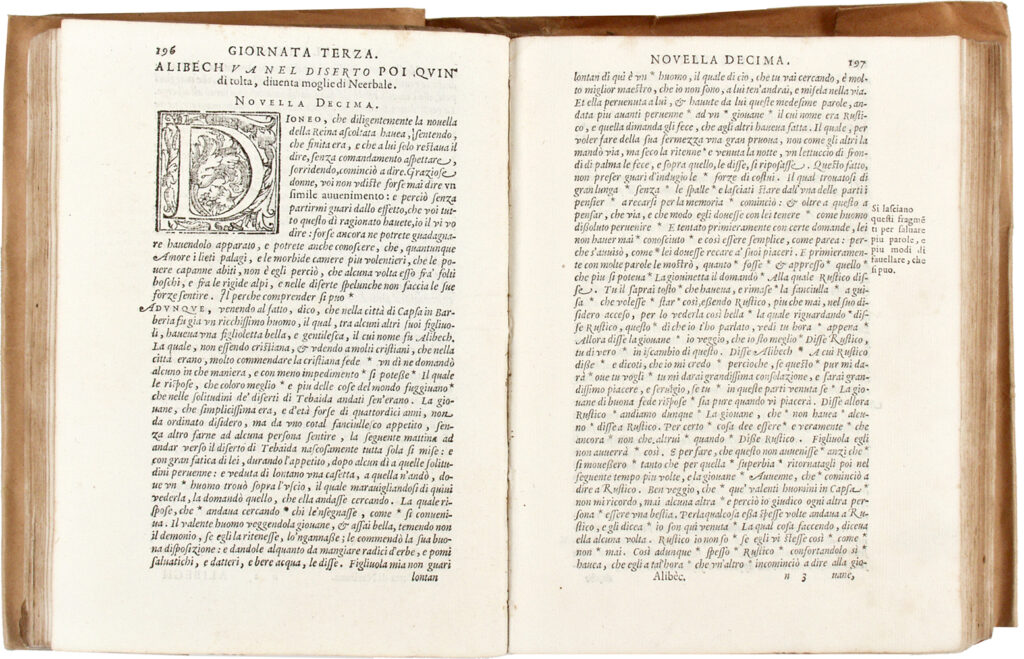 196 GIORNATA TERZA.
ALIBECH VA NEL DISERTO POI .QVIN
di tolta, diuenta moglie di Neerbale.
NOVELLA DECIMA.
DIONEO, che diligentemente la nouella
della Reina aſcoltata hauea, ſentendo,
che finita era, e che a lui ſolo reſtaua il
dire, ſenza comandamento aſpettare,
ſorridendo, cominciò a dire. Grazioſe
donne, voi non vdiſte forſe mai dire vn
ſimile auuenimento: e perciò ſenza
partirmi guari dallo effetto, che voi tut-
to queſto dì ragionato hauete, io il vi vo
dire: forſe ancora ne potrete guadagna-
re hauendolo apparato, e potrete anche conoſcere, che, quantunque
Amore i lieti palagi, e le morbide camere piu volentieri, che le po
uere capanne abiti, non è egli perciò, che alcuna volta eſſo fra' folti
boſchi, e fra le rigide alpi, e nelle diſerte ſpelunche non faccia le ſue
forze ſentire. Il perche comprender ſi puo *
ADVNQVE, venendo al fatto, dico, che nella città di Capſa in Bar-
beria fu gia vn ricchiſſimo huomo, il qual, tra alcuni altri ſuoi figliuo-
li, haueua vna figlioletta bella, e gentileſca, il cui nome fu Alibech.
La quale, non eſſendo criſtiana, & vdendo a molti criſtiani, che nella
città erano, molto commendare la criſtiana fede * vn dì ne domandò
alcuno in che maniera, e con meno impedimento * ſi poteſſe * Il quale
le riſpoſe, che coloro meglio * e piu delle coſe del mondo fuggiuano *
che nelle ſolitudini de' diſerti di Tebaida andati ſen'erano. La gio-
uane, che ſempliciſſima era, e d'età forſe di quattordici anni, non
da ordinato diſidero, ma da vno cotal fanciulleſco appetito, ſen-
za altro farne ad alcuna perſona ſentire, la ſeguente mattina ad
andar verſo il diſerto di Tebaida naſcoſamente tutta ſola ſi miſe: e
con gran fatica di lei, durando l'appetito, dopo alcun dì a quelle ſolitu-
dini peruenne: e veduta di lontano vna caſetta, a quella n'andò, do-
ue vn * huomo trouò ſopra l'vſcio, il quale marauigliandoſi di quiui
vederla, la domandò quello, che ella andaſſe cercando. La quale ri-
ſpoſe, che * andaua cercando * chi le'nſegnaſſe, come * ſi conueni-
ua. Il valente huomo veggendola giouane, & aſſai bella, temendo non
il demonio, ſe egli la riteneſſe, lo'ngannaſſe; le commendò la ſua buo-
na diſpoſizione: e dandole alquanto da mangiare radici d'erbe, e pomi
ſaluatichi, e datteri, e bere acqua, le diſſe. Figliuola mia non guari
lontan
NOVELLA DECIMA. 197
lontan di quì è vn * huomo, il quale di cio, che tu vai cercando, è mol-
to miglior maeſtro, che io non ſono, a lui ten'andrai, e miſela nella via.
Et ella peruenuta a lui, & hauute da lui queſte medeſime parole, an-
data piu auanti peruenne * ad vn * giouane * il cui nome era Ruſti-
co, e quella dimanda gli fece, che agli altri haueua fatta. Il quale, per
voler fare della ſua fermezza vna gran pruoua, non come gli altri la
mandò via, ma ſeco la ritenne * e venuta la notte, vn lettuccio di fron-
di di palma le fece, e ſopra quello, le diſſe, ſi ripoſaſſe. Queſto fatto,
non preſer guari d'indugio le * forze di coſtui. Il qual trouatoſi di
gran lunga * ſenza * le ſpalle * e laſciati ſtare dall'vna delle parti i
penſier * a recarſi per la memoria * cominciò: & oltre a queſto a
penſar, che via, e che modo egli doueſſe con lei tenere * come huomo
diſſoluto peruenire * E tentato primieramente con certe domande, lei
non hauer mai * conoſciuto * e così eſſere ſemplice, come parea: per-
che s'auuisò, come * lei doueſſe recare a' ſuoi piaceri. E primieramen-
te con molte parole le moſtrò, quanto * foſſe * & appreſſo * quello *
che piu ſi poteua * La giouinetta il domandò * Alla quale Ruſtico diſ-
ſe. Tu il ſaprai toſto * che haueua, e rimaſe * la fanciulla * a gui-
ſa * che voleſſe * ſtar * così, eſſendo Ruſtico, piu che mai, nel ſuo di-
ſidero acceſo, per lo vederla così bella * la quale riguardando * diſ-
ſe Ruſtico, queſto * di che io t'ho parlato, vedi tu hora * appena *
Allora diſſe la giouane * io veggio, che io ſto meglio * Diſſe Ruſtico,
tu di vero * in iſcambio di queſto. Diſſe Alibech * A cui Ruſtico
diſſe * e dicoti, che io mi credo * percioche, ſe queſto * pur mi da-
rà * oue tu vogli * tu mi darai grandiſſima conſolazione, e farai gran-
diſſimo piacere, e ſeruigio, ſe tu * in queſte parti venuta ſe * La gio-
uane di buona fede riſpoſe * ſia pure quando vi piacerà. Diſſe allora
Ruſtico * andiamo dunque * La giouane, che * non hauea * alcu-
no * diſſe a Ruſtico. Per certo * coſa dee eſſere * e veramente * che
ancora * non che, altrui * quando * Diſſe Ruſtico. Figliuola egli
non auuerrà * così. E per fare, che queſto non aueniſſe * anzi che *
ſi moueſſero * tanto che per quella * ſuperbia * ritornatagli poi nel
ſeguente tempo piu volte, e la giouane * Auuenne, che * cominciò a
dire a Ruſtico. Ben veggio, che * que' valenti huomini in Capſa *
non mi ricordo, mai alcuna altra * e perciò io giudico ogni altra per-
ſona * eſſere vna beſtia. Perlaqualcoſa eſſa ſpeſſe volte andaua a Ru-
ſtico, e gli dicea * io ſon quì venuta * La qual coſa faccendo, diceua
ella alcuna volta. Ruſtico io non ſo * ſe egli vi ſteſſe così * come *
non * mai. Così adunque * ſpeſſo * Ruſtico * confortandolo ſi *
hauea, che egli a tal'hora * che vn'altro * incominciò a dire alla gio-
Alibèc. n 3 uane,
Si laſciano
queſti fragmẽ
ti per ſaluare
piu parole, e
piu modi di
fauellare, che
ſi puo.